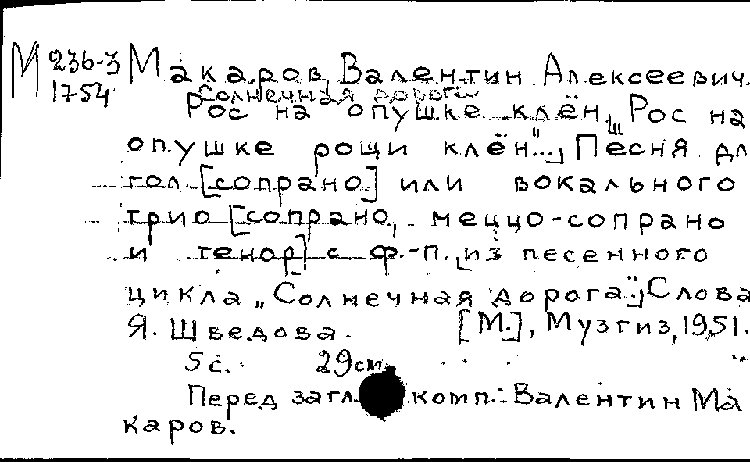 М 236-3 Макаров, Валентин Алексеевич.
1754 Солнечная дорога
Рос на опушке клён. „Рос на
опушке рощи клён“...; Песня дл
гол. [сопрано] или вокального
трио [сопрано, меццо-сопрано
и тенор] с ф.-п. из песенного
цикла „Солнечная дорога“; Слова
Я. Шведова. [М.], Музгиз, 1951.
5 с. 29 см.
Перед загл. комп.: Валентин Ма
каров.